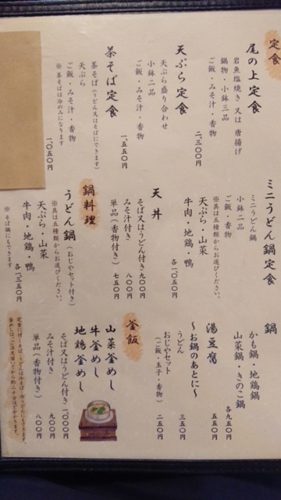 定食
尾の上定食
岩魚塩焼き 又は 唐揚げ
鍋物・小鉢三品
ご飯・みそ汁・香物
二、三〇〇円
天ぷら定食
天ぷら盛り合わせ
小鉢二品
ご飯・みそ汁・香物
一、五五〇円
茶そば定食
茶そば(うどん又はそばにできます)
天ぷら
ご飯・みそ汁・香物
※ 茶そばは冷めんになります
一、〇五〇円
ミニうどん鍋定食
ミニうどん鍋
小鉢二品
ご飯・香物
※ 具は五種類からお選びください。
天ぷら・山菜
牛肉・地鶏・鴨
各一、〇五〇円
天丼
そば又はうどん付き 九〇〇円
みそ汁付き 七五〇円
単品(香物付き)
鍋料理
うどん鍋(おじやセット付き)
※具は五種類からお選びください。
天ぷら・山菜
牛肉・地鶏・鴨
各一、三五〇円
※ そば鍋にもできます
鍋
かも鍋・地鶏鍋
山菜鍋・きのこ鍋
各九五〇円
湯豆腐
五五〇円
~お鍋のあとに~
うどん 三五〇円
おじやセット
(ご飯・玉子・香物) 二五〇円
釜飯
山菜釜めし
牛釜めし
地鶏釜めし
そば又はうどん付き 一、〇〇〇円
みそ汁付き 九〇〇円
単品(香物付き) 八〇〇円